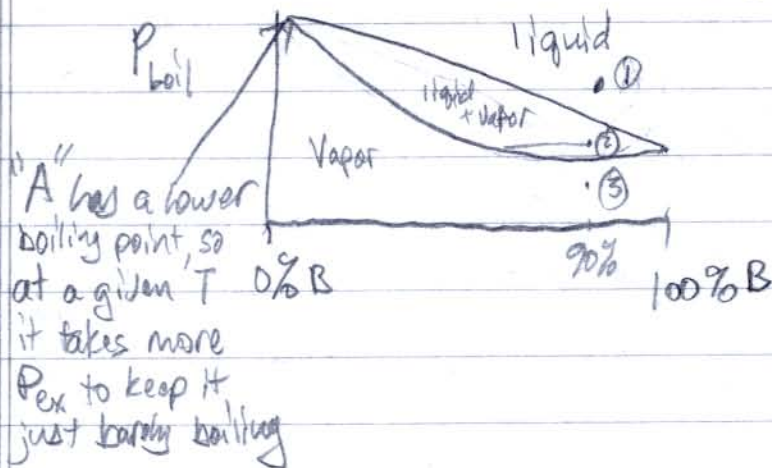 P boil
liquid
①
liquid
+ vapor
②
Vapor
③
"A" has a lower
boiling point, so
at a given T
it takes more
Pex to keep it
just barely boiling
0% B
90%
100% B